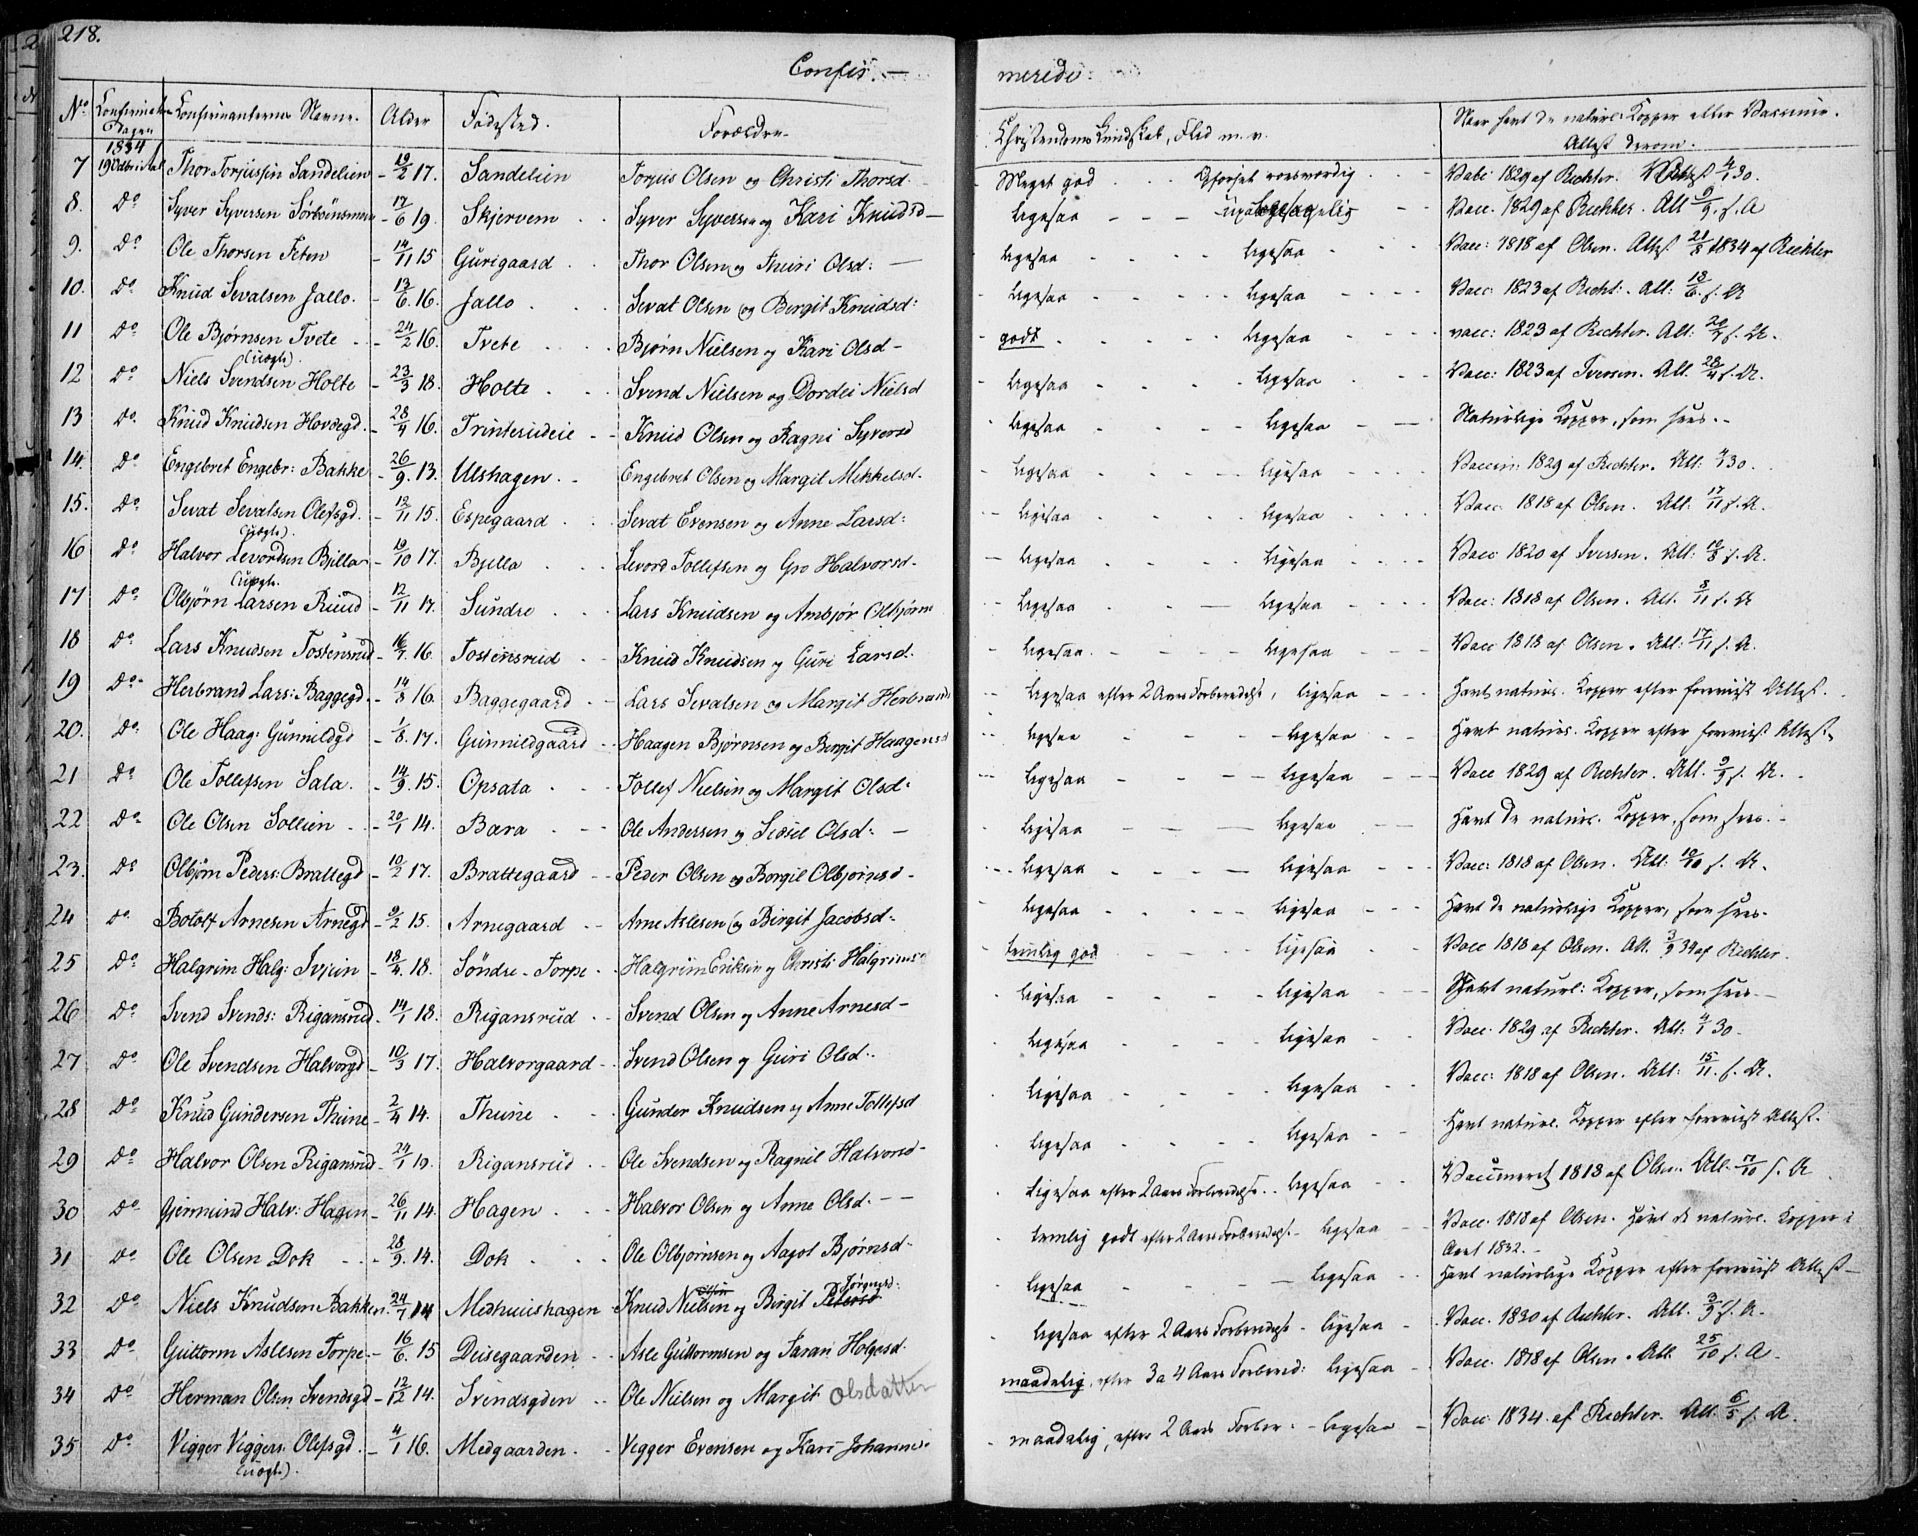 218.
Confir. — merede.
No. Confirmations Dagen Confirmanternes Navne. Alder Fødested. Forældre. Christendoms Kundskab, Flid m. v. Naar havt de naturl: Kopper eller Vaccinir. Attest derom.
1834
7 19 Octbr i Aal Thor Torjussen Sandelien 19/2 17. Sandelien Torjus Olsen og Christi Thorsd: Meget god Opførsel roesværdig Vacc: 1829 af Richter. Attest 4/1 30.
8. Do Syver Syversen 17/6 19. Skjervem Syver Syversen og Kari Knudsd — ligesaa Vacc. 1829 af Richter. Att 9/9. s. A
9. Do Ole Thorsen Feten 14/11 15 Gurigaard Thor Olsen og Thuri Olsd: — ligesaa ligesaa Vacc: 1818 af Olsen. Attest 21/8 1834 af Richter
10. Do Knud Sevatsen Jallo. 13/6. 16. Jallo Sevat Olsen og Bergit Knudsd: ligesaa ligesaa Vacc: 1823 af Richt:. Att: 18/6. s. A
11 Do Ole Bjørnsen Tvete 24/2 16. Tvete Bjørn Nielsen og Kari Olsd godt ligesaa vacc: 1823 af Richter. Att. s. A.
12 Do Niels Svendsen Holte (uægte). 23/3 18. Holte Svend Nielsen og Dordei Nielsd ligesaa ligesaa Vacc: 1823 af Iversen. Att. 28/4 s. A.
13 Do Knud Knudsen Hovdegd. 28/4 16. Trinterudeie Knud Olsen og Ragni Syversd ligesaa ligesaa Naturlige Kopper, som sees.
14. Do Engebret Engebr: Bakke 26/9. 13. Ulshagen Engebret Olsen og Margit Mikkelsd. ligesaa ligesaa Vaccin: 1829 af Richter. Att: 30.
15. Do Sevat Sevatsen Olefsgd. 12/11 15. Espegaard Sevat Evensen og Anne Larsd: ligesaa ligesaa Vacc. 1818 af Olsen. Att. 17/11 s. A.
16 Do Halvor Levordsen Bjella (uægte). 19/10 17. Bjella Levord Tollefsen og Gro Halvorsd. ligesaa ligesaa Vacc 1820 af Iversen. Att: 10/8 s. A.
17 Do Olbjørn Larsen Ruud (uægte. 12/11 17. Sundre Lars Knudsen og Ambjør Olbjørns ligesaa ligesaa Vacc: 1818 af Olsen. Att. 8/11 s. A
18 Do Lars Knudsen Tostensrud 16/7 16 Tostensrud Knud Knudsen og Guri Larsd. ligesaa ligesaa Vacc 1818 af Olsen. Att: 17/11 s. A.
19 Do Herbrand Lars: Baggegd. 14/8 16. Baggegaard Lars Sevatsen og Margit Herbrands ligesaa efter 2 Aars Forberedelse, ligesaa Havt naturl. Kopper efter foreviist Attest.
20. Do Ole Haag: Gunnildgd 1/8. 17. Gunnildgaard Haagen Bjørnsen og Bergit Haagensd ligesaa ligesaa Havt naturl. Kopper efter foreviist Attest.
21 Do Ole Tollefsen Sala. 14/9. 15. Opsata Tollef Nielsen og Margit Olsd: ligesaa ligesaa Vacc 1829 af Richter. Att. 9/9 s. A.
22 Do Ole Olsen Sollien 20/1 14. Bæra Ole Andersen og Sidsil Olsd: — ligesaa ligesaa Havt de naturl. Kopper, som sees.
23. Do Olbjørn Peders: Brattegd 10/2 17. Brattegaard Peder Olsen og Borgil Olbjørnsd ligesaa ligesaa Vacc: 1818 af Olsen. Att: 10/10 s. A.
24 Do Botolf Arnesen Arnegd 9/2 15. Arnegaard Arne Aslesen og Birgit Jacobsd. ligesaa ligesaa Havt de naturlige Kopper, som sees.
25 Do Halgrim Halg: Svjein 18/4. 18. Søndre-Torpe Halgrim Eriksen og Christi Halgrimsd temlig god ligesaa Vacc 1818 af Olsen. Att. 3/9 34 af Richter.
26 Do Svend Svends: Rigansrud 14/1 18. Rigansrud Svend Olsen og Anne Arnesd ligesaa ligesaa Havt naturl: Kopper, som sees.
27 Do Ole Svendsen Halvorgd 10/3 17. Halvorgaard Svend Olsen og Guri Olsd. ligesaa ligesaa Vacc. 1829 af Richter. Att: 4/1 30.
28 Do Knud Gundersen Thune 2/4 14. Thune Gunder Knudsen og Anne Tollefsd ligesaa ligesaa Vacc: 1818 af Olsen. Att: 15/11. s. A.
29 Do Halvor Olsen Rigansrud 24/1 19. Rigansrud Ole Svendsen og Ragnil Halvorsd ligesaa ligesaa Havt naturl. Kopper efter foreviist Attest.
30 Do Gjermund Halv: Hagen 26/11 14. Hagen Halvor Olsen og Anne Olsd. ligesaa efter 2 Aars Forberedelse ligesaa Vaccineret 1818 af Olsen. Att. s. A
31 Do Ole Olsen Dok 28/9. 14. Dok Ole Olbjørnsen og Aagot Bjørnsd temlig godt efter 2 Aars Forberedelse ligesaa Vacc. 1818 af Olsen. Havt de naturl. Kopper i Aaret 1832.
32 Do Niels Knudsen Bakken 24/7 14 Medhuushagen Knud Nielsen og Birgit Petersd ligesaa ligesaa Havt naturlige Kopper efter foreviist Attest
33 Do Guttorm Aslesen Torpe 16/6. 15 Deisegaarden Asle Guttormsen og Saran Holgesd. ligesaa efter 2 Aars Forberedelse ligesaa Vacc. 1830 af Richter. Att. s. A.
34 Do Herman Olsen Svendsgd 12/12 14. Svendsgden Ole Nielsen og Margit Olsdatter maadelig, efter 3 a 4 Aars Forbered: ligesaa Vacc. 1818 af Olsen. Att. 25/10 s. A
35 Do Vigger Viggers: Olefsgd. (uægte). 4/1 16. Medgaarden Vigger Evensen og Kari Johannes maadelig, efter 2 Aars Forber: ligesaa Vacc: 1834 af Richter. Att. 6/5 s. A.